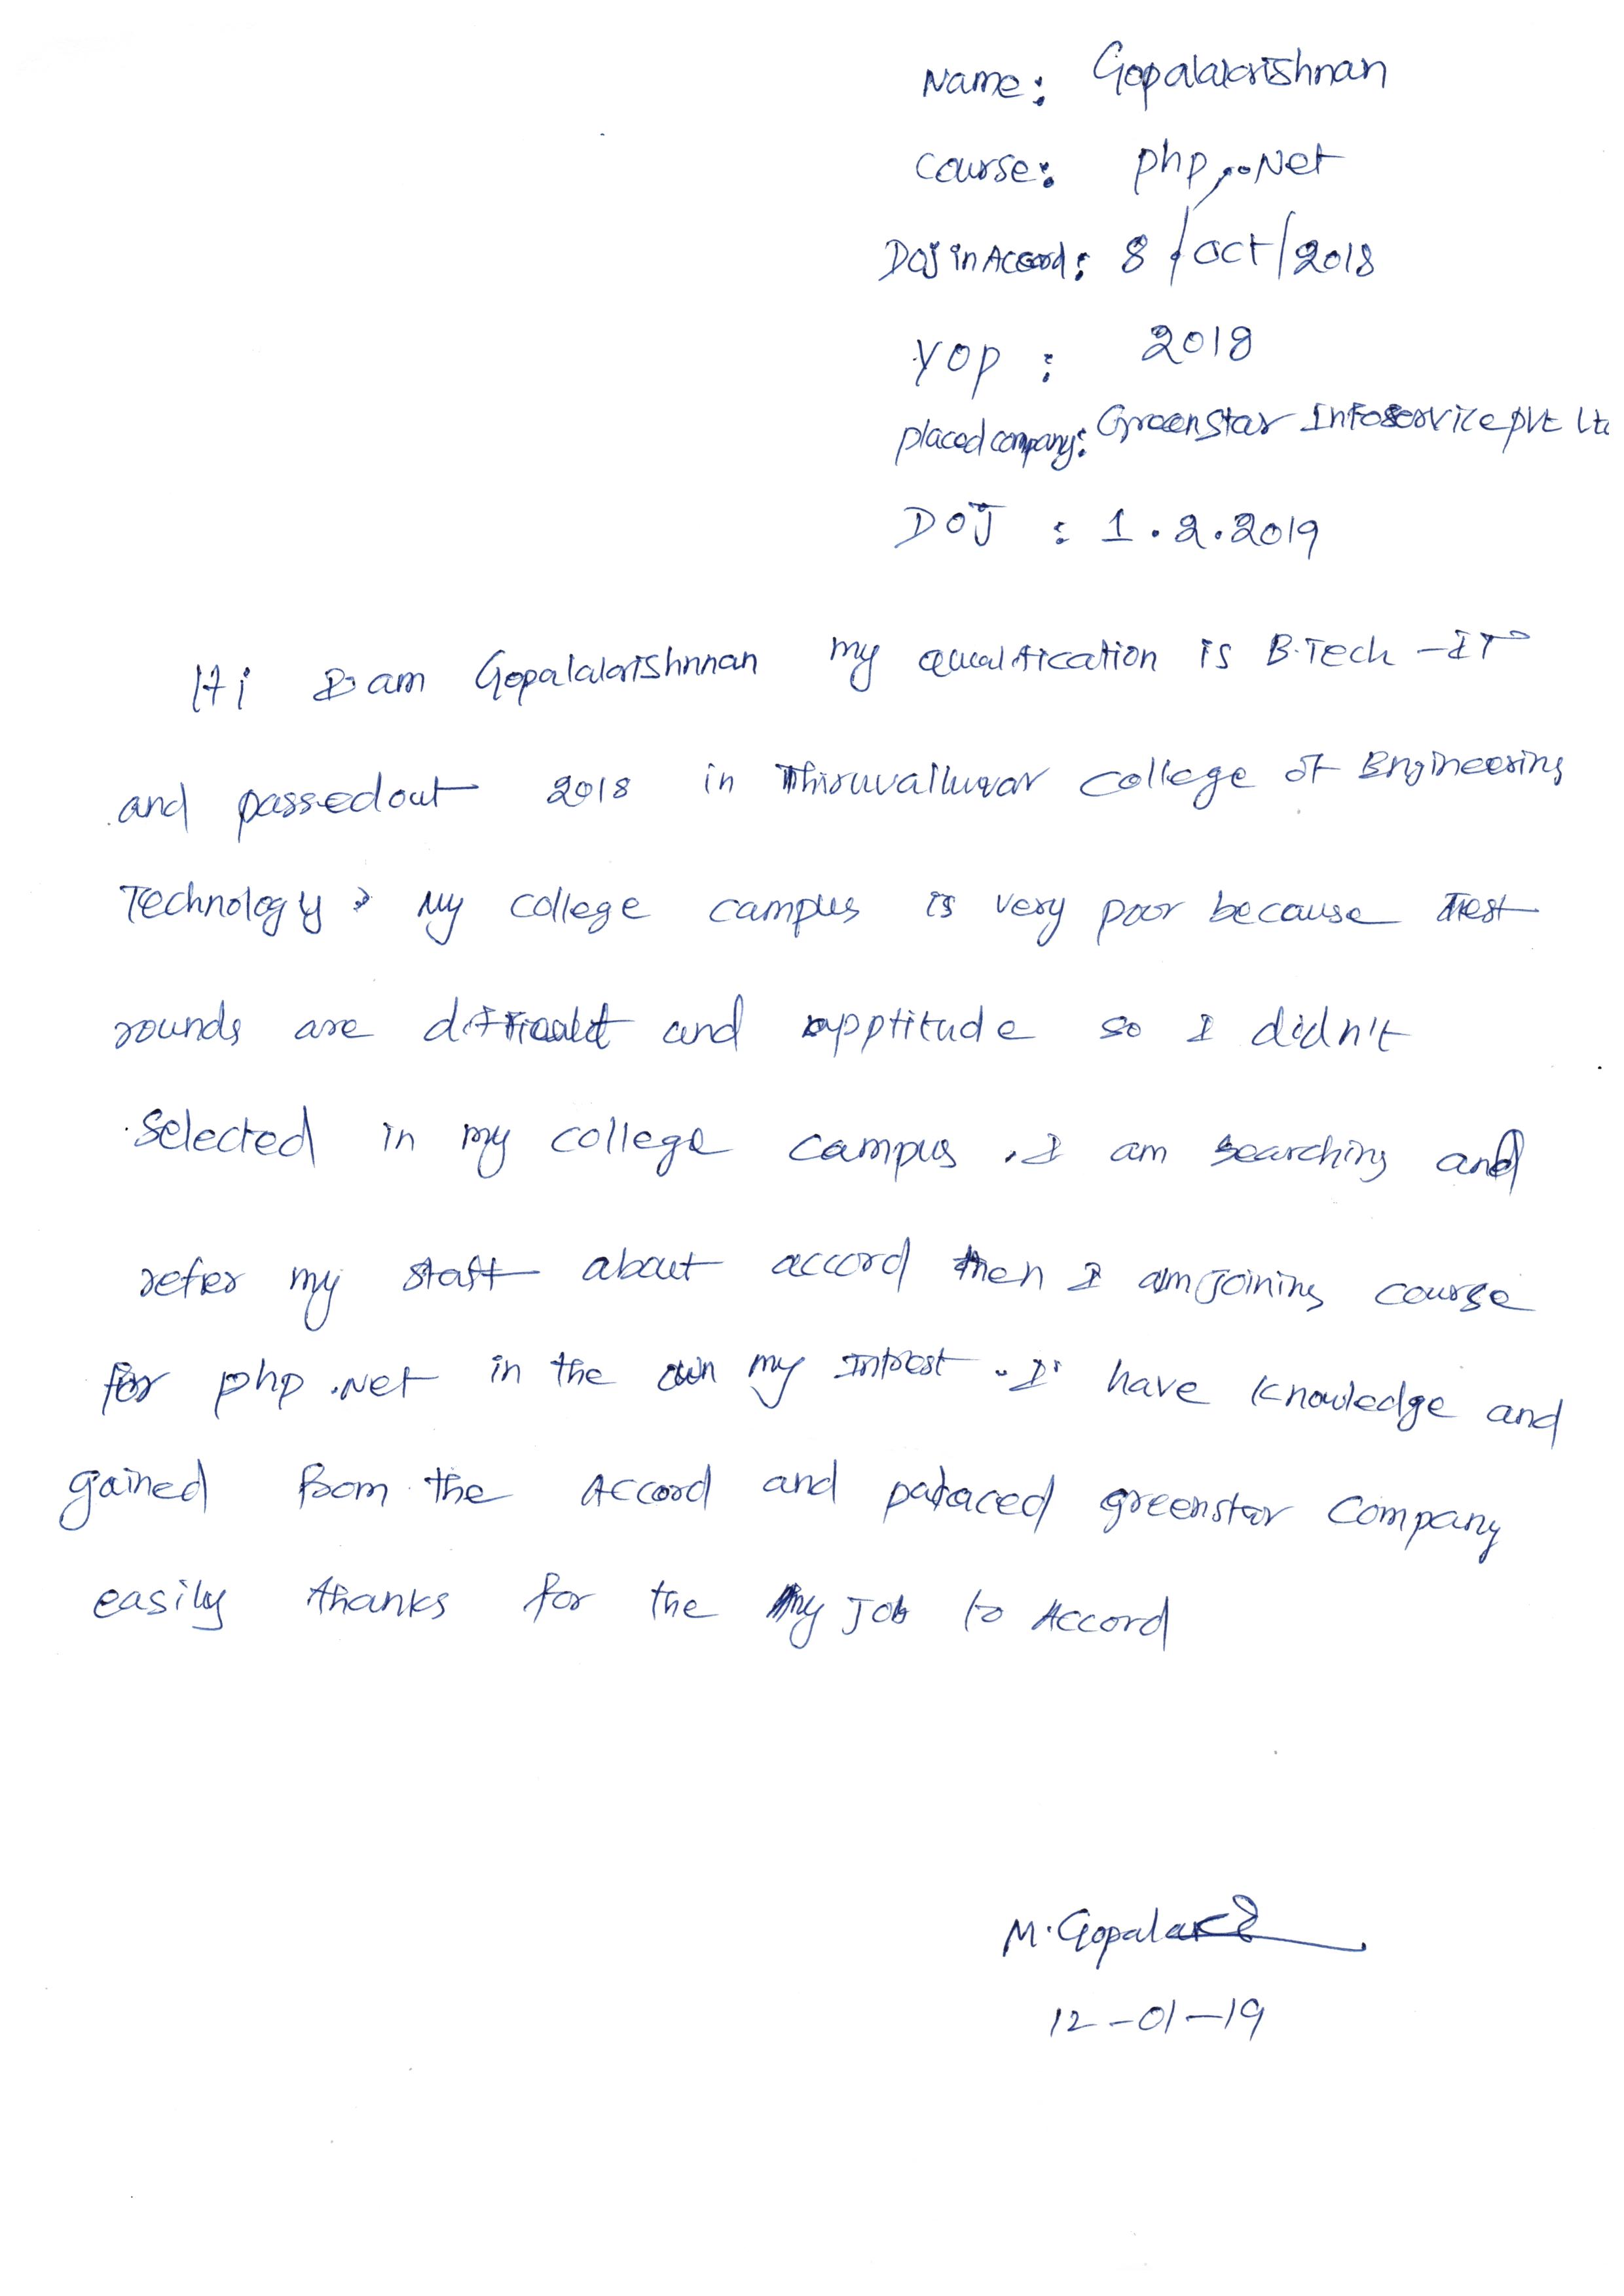 Name: Gopalakrishnan
Course: php, .Net
DOJ in Accord: 8/Oct/2018
YOP : 2018
placed company: Greenstar Infoservice pvt Ltd
DOJ : 1.2.2019
Hi I am Gopalakrishnnan my qualification is B.Tech - IT
and passedout 2018 in Thiruvalluvar College of Engineering
Technology, My college campus is very poor because Test
rounds are difficult and apptitude so I didn't
Selected in my college campus, I am searching and
refer my staff about accord then I am joining course
for php .Net in the own my Intrest. I have knowledge and
gained from the Accord and placed greenstar Company
easily thanks for the My Job to Accord
12-01-19